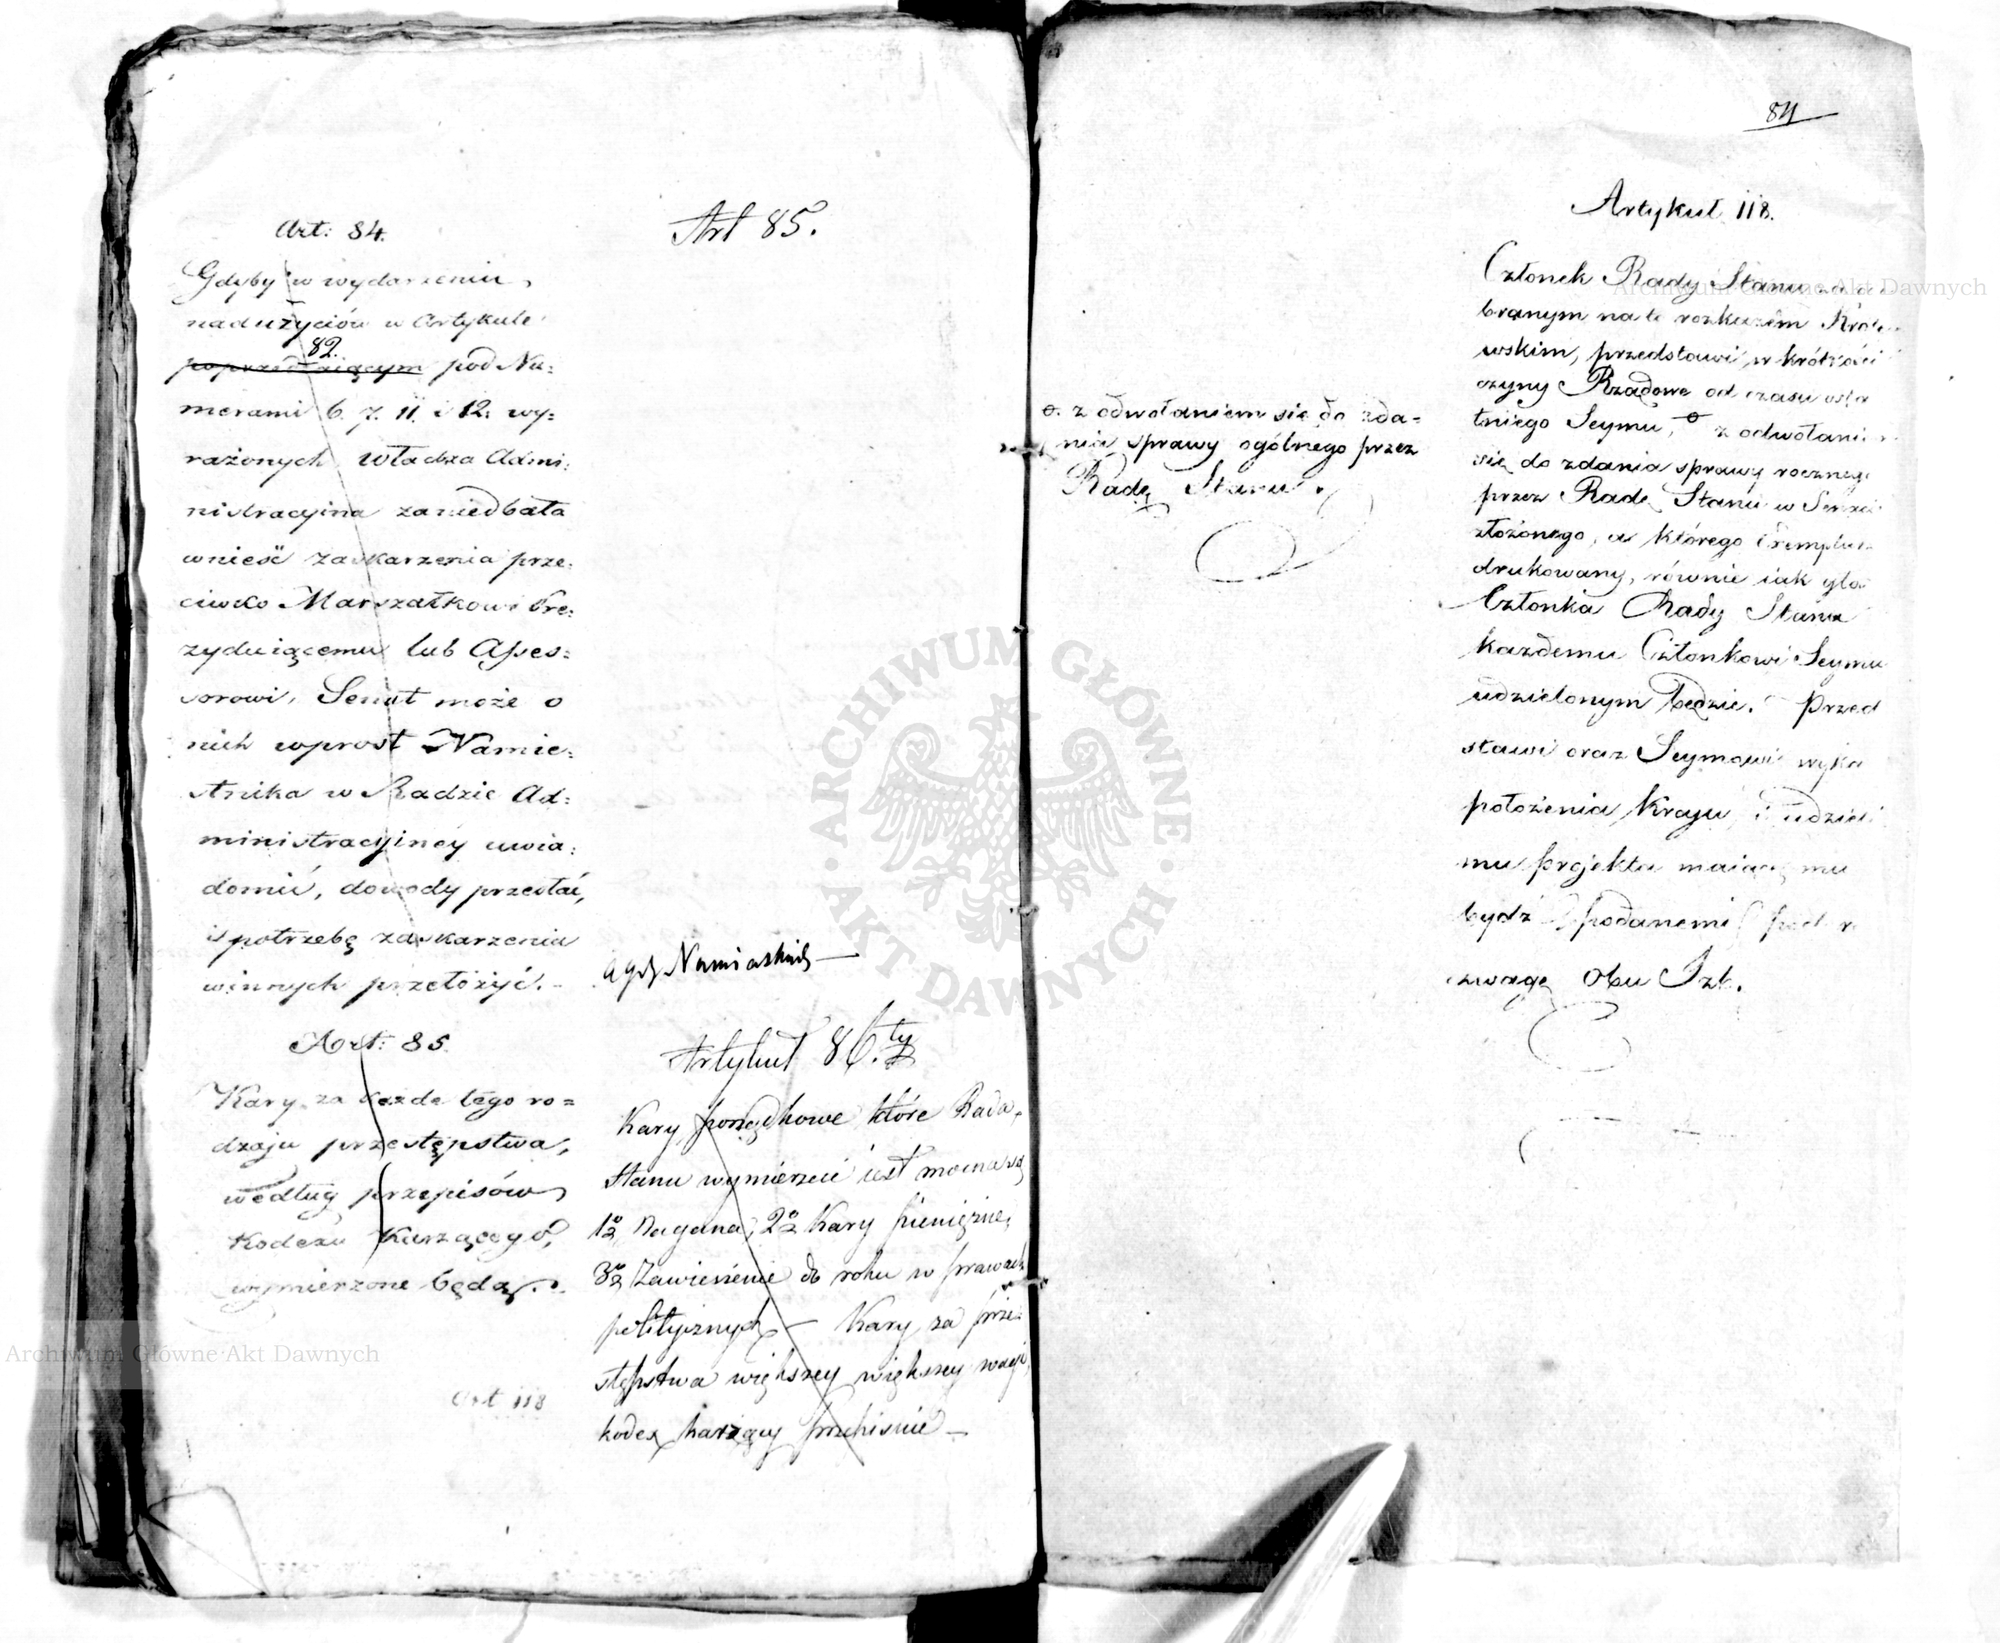 Art: 84.
Gdyby w wydarzeniu
nadużyciów w Artykule
82.
poprzedzaiącym pod Nu=
merami 6. 7. 11. i 12. wy=
rażonych, władza Admi=
nistracyina zaniedbała
wnieść zaskarzenia prze=
ciwko Marszałkowi Pre=
zyduiącemu lub Asses=
sorowi, Senat może o
nich wprost Namie=
stnika w Radzie Ad=
ministracyiney uwia=
domić, dowody przesłać,
i potrzebę zaskarzenia
winnych przełożyć.
Art: 85.
Kary za każde tego ro=
dzaju przestępstwa,
według przepisów
Kodexu Karzącego,
wymierzone będą.
Art 118
Art 85.
Namiestnik
Artykuł 86.ty
Kary porządkowe które Rada
Stanu wymierzać jest mocna są
1o Nagana, 2o Kary pieniężne,
3o Zawieszenie do roku w prawach
politycznych — Kary za prze=
stępstwa większey większey wagi,
kodex karzący przepisuie —
84
Artykuł 118.
Członek Rady Stanu
branym na to rozkazem Króle
wskim, przedstawi w krótkości
czyny Rządowe od czasu osta
tniego Seymu, z odwołaniem
się do zdania sprawy rocznego
przez Radę Stanu w Senacie
złożonego, a którego Exemplarz
drukowany, równie iak głos
Członka Rady Stanu
każdemu Członkowi Seymu
udzielonym będzie. Przed
stawi oraz Seymowi
położenia Kraju, i udzieli
mu projekta maiące mu
bydź podanemi pod ro
zwagę Obu Izb.
o. z odwołaniem się do zda=
nia sprawy ogólnego przez
Radę Stanu.
ARCHIWUM GŁÓWNE AKT DAWNYCH
Archiwum Główne Akt Dawnych
Archiwum Główne Akt Dawnych